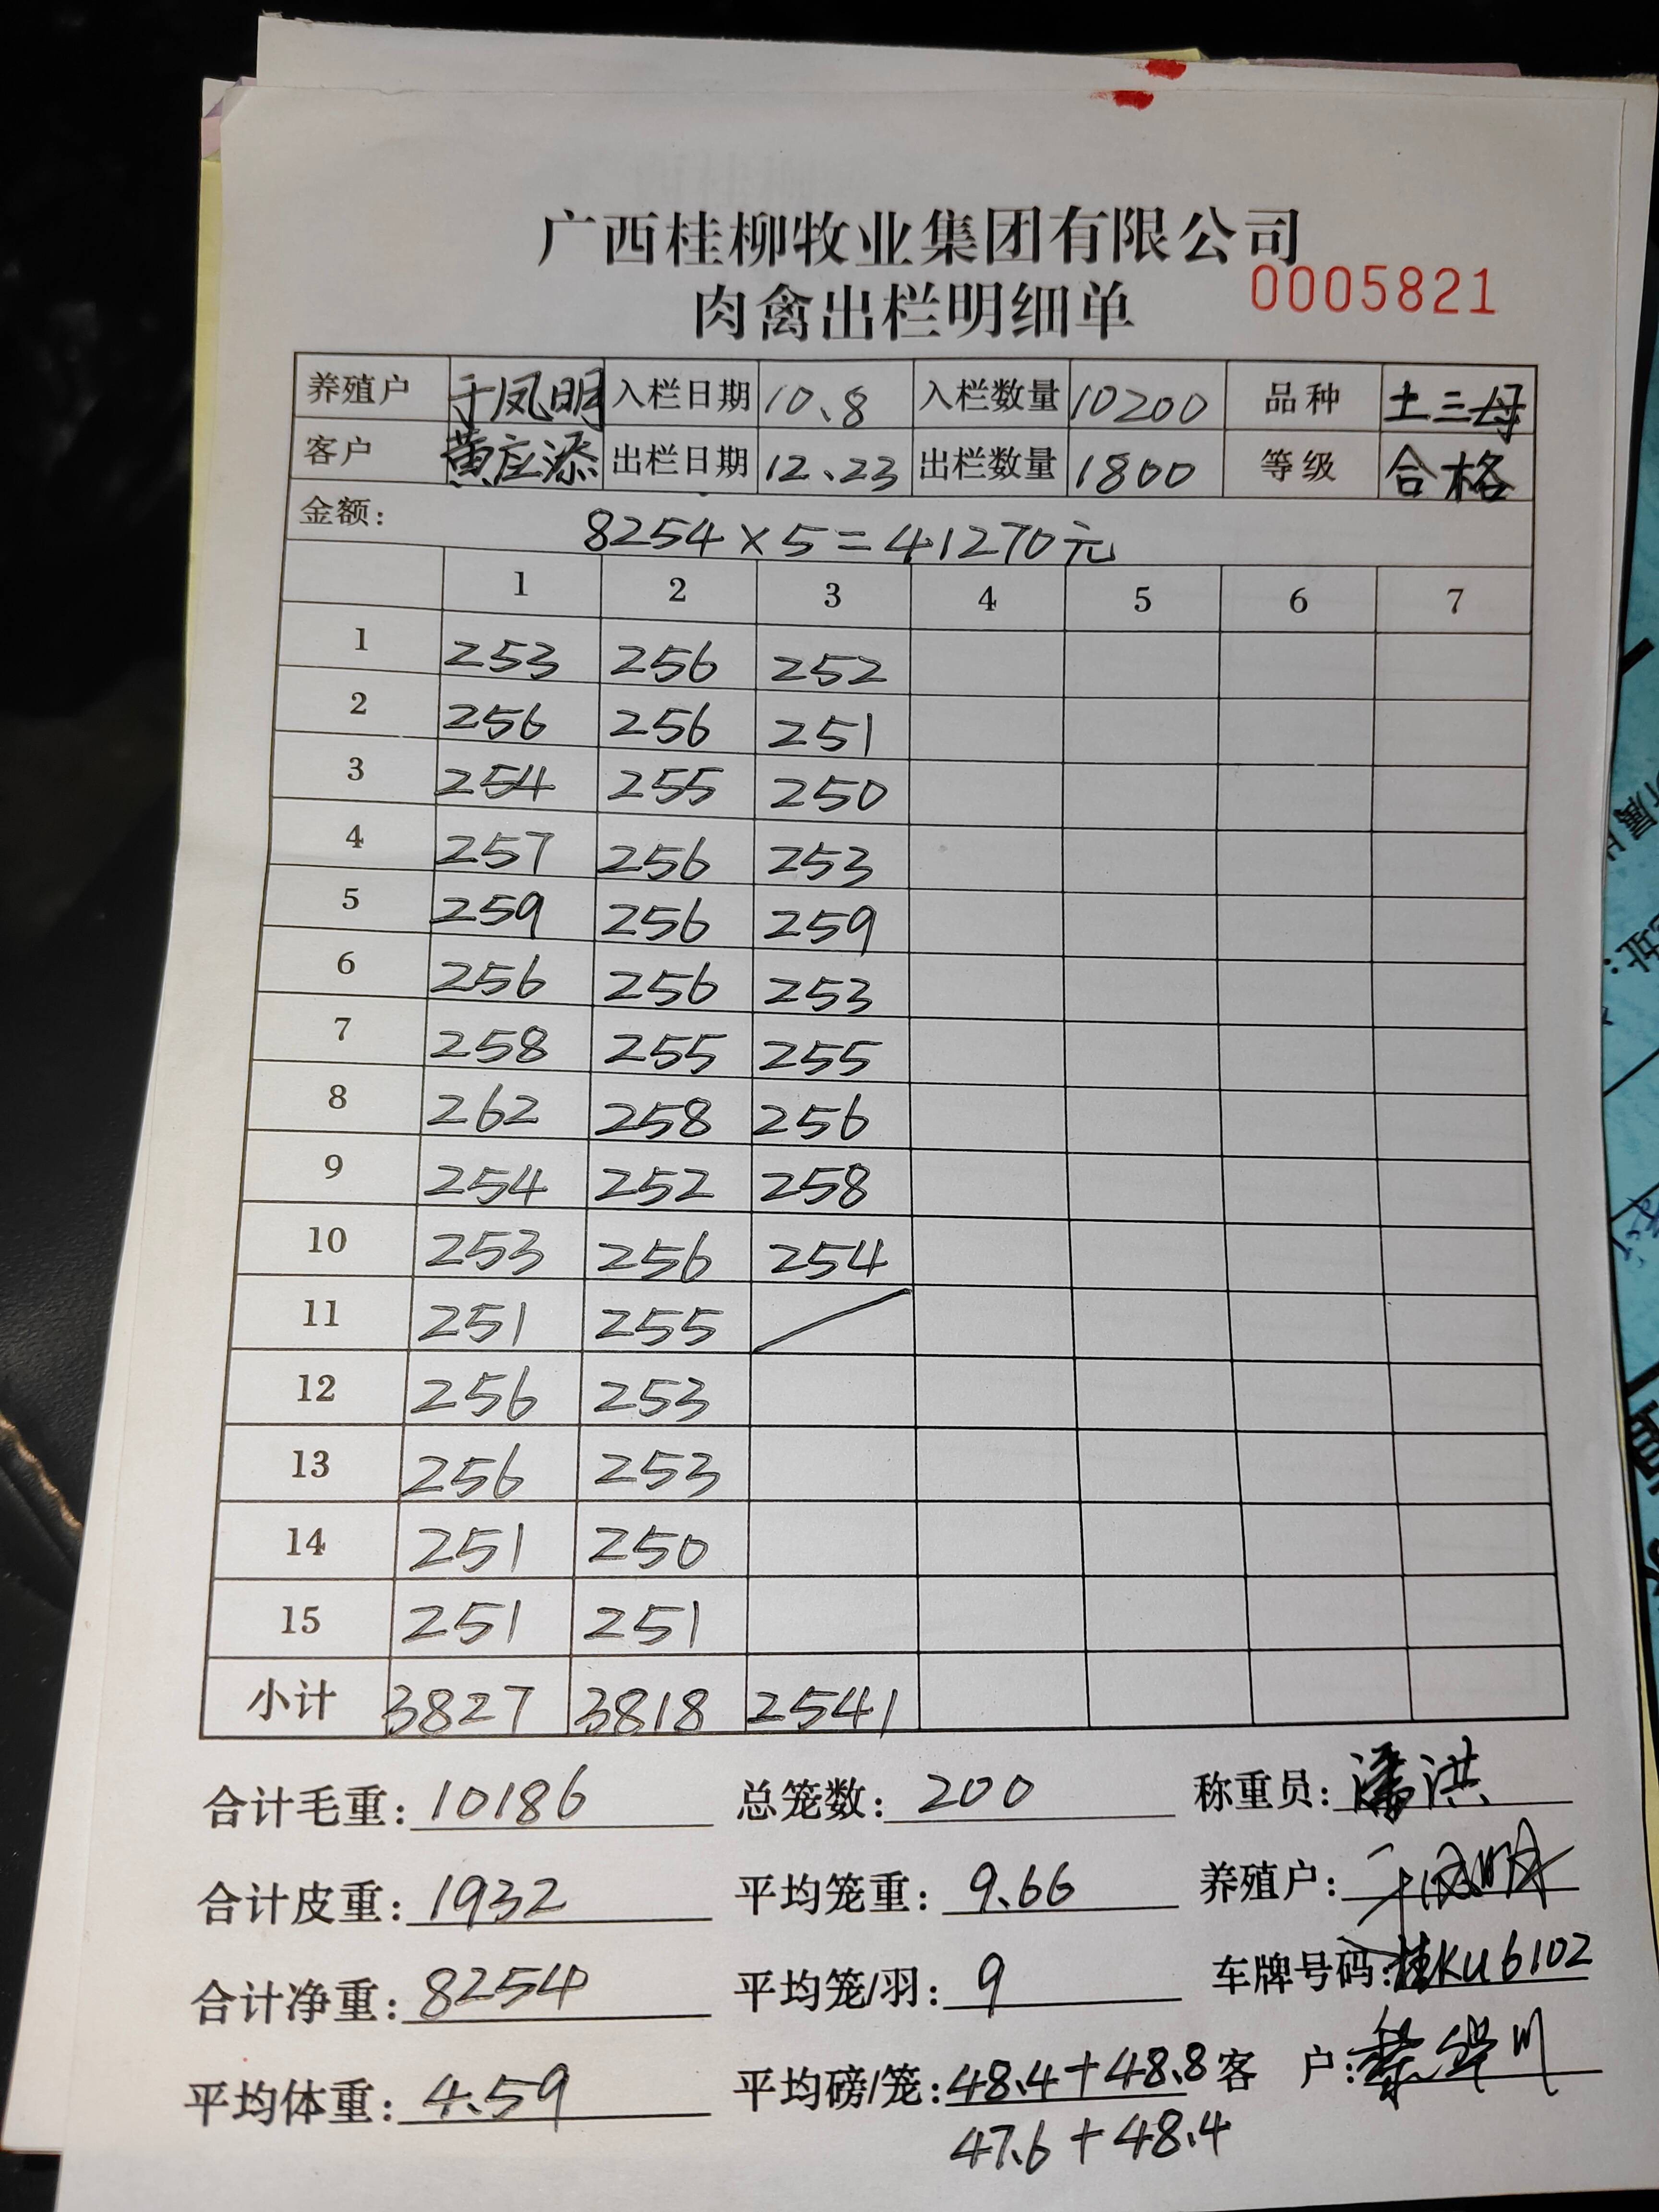 广西桂柳牧业集团有限公司
肉禽出栏明细单 0005821
养殖户 于凤明 入栏日期 10.8 入栏数量 10200 品种 土三母
客户 黄应添 出栏日期 12.23 出栏数量 1800 等级 合格
金额: 8254×5=41270元
1 2 3 4 5 6 7
1 253 256 252
2 256 256 251
3 254 255 250
4 257 256 253
5 259 256 259
6 256 256 253
7 258 255 255
8 262 258 256
9 254 252 258
10 253 256 254
11 251 255
12 256 253
13 256 253
14 251 250
15 251 251
小计 3827 3818 2541
合计毛重: 10186 总笼数: 200 称重员: 潘洪
合计皮重: 1932 平均笼重: 9.66 养殖户: 于凤明
合计净重: 8254 平均笼/羽: 9 车牌号码: 桂KU6102
平均体重: 4.59 平均磅/笼: 48.4+48.8 客 户:
47.6+48.4